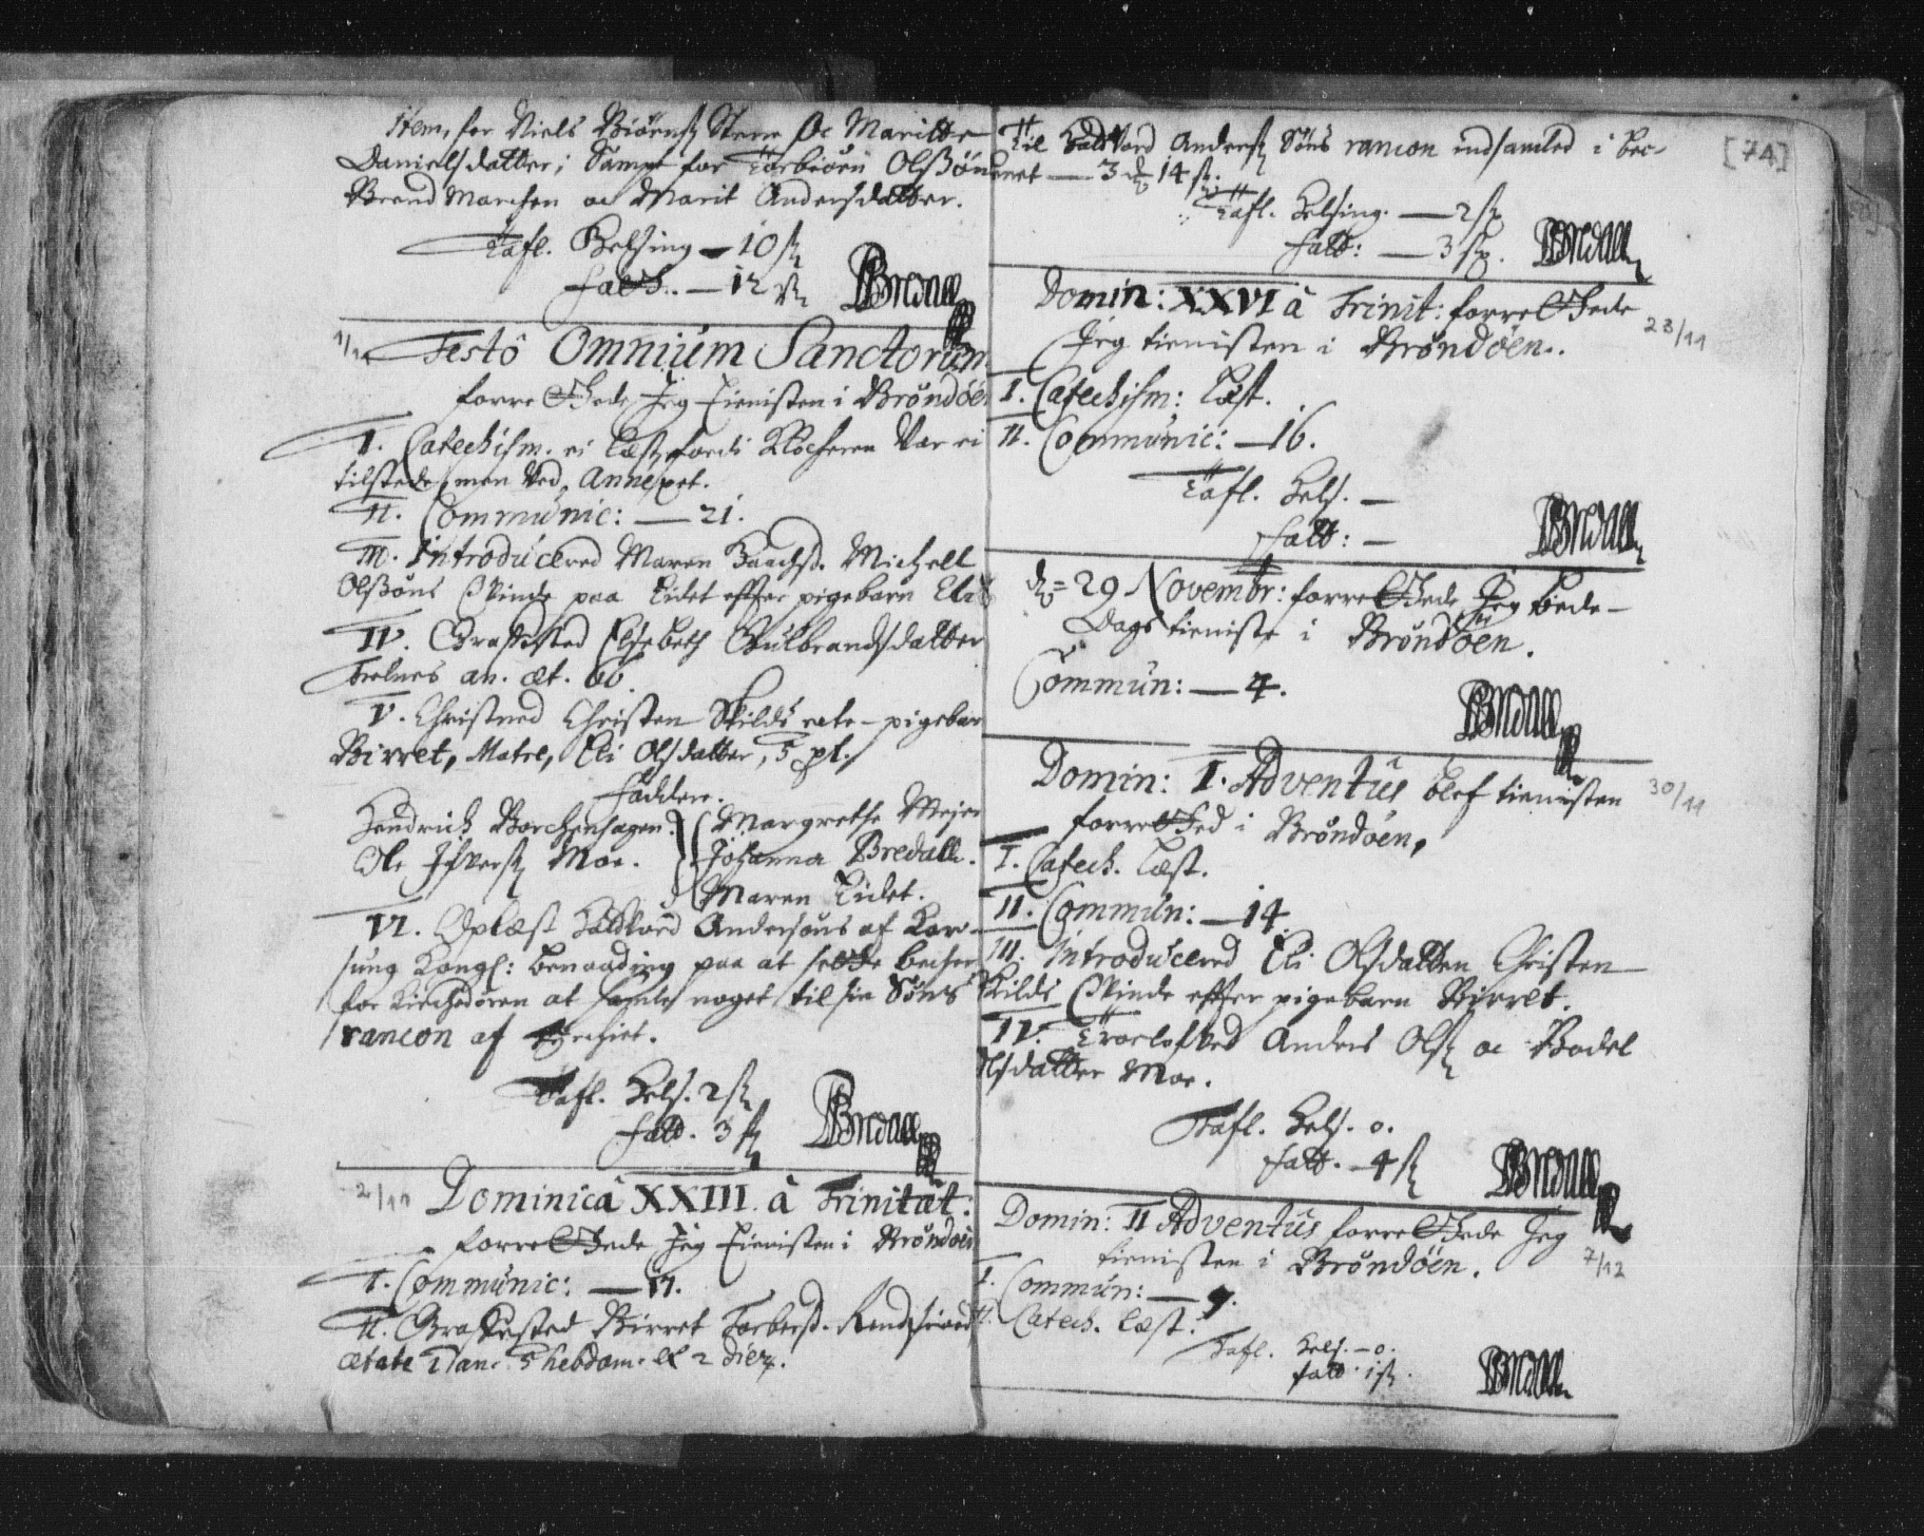 Item, for Niels Biörnß Steen oc Maritte
Danielsdatter; Sampt for Torbiörn Olßön
Brend Marchen oc Marit Andersdatter.
Tafl. Belsing — 10 ß
fatt.. — 12 ß Bredall
1/11 Festô Omnium Sanctorum
forrettede Jeg Tienisten i Brøndöen
I. Catechism. ei læst, fordi Klocheren Var ei
tilstede, men Ved Annexet.
II. Communic: — 21.
III. Introducered Maren Michell
Olßöns Qvinde paa Eidet effter pigebarn
IV. Graffæsted Elsebeth Gulbrandsdatter
an. æt. 66.
V. Christned Christen Skilds ecte-pigebar
Birret, Matre, Eli Olsdatter, 5 pt.
Faddere.
Hendrich Borchenhagen. Margrethe Mejer
Ole Ifversß Moe. Johanna Bredall.
Maren Eidet.
VI. Oplæst Haldvord Andersöns af
Kongl: benaading paa at sette becher
for Kirchedören at samle noget til sin Söns
rancon af
Tafl. Bels. 2 ß
fatt. 3 ß Bredall
2/11 Dominicâ XXIII à Trinitat:
forrettede Jeg Tienisten i Brøndöen
I. Communic: — 17.
II. Graffæsted Birret
ætate 1 an. 5 hebdom. et 2 dier.
[74]
Til Haldvord Andersß Söns rancon indsamled i bec-
enet — 3 dr 14 ß.
Tafl. Belsing. — 2 ß
fatt: — 3 ß. Bredall
Domin: XXVI à Trinit: forrettede
Jeg tienisten i Brøndöen.. 23/11
I. Catechism: Læst.
II. Communic: — 16.
Tafl. Bels. —
fatt: — Bredall
d. 29 Novembr: forrettede Jeg bede-
Dags tieniste i Brøndöen.
Commun: — 4.
Bredall
Domin: I. Adventus blef tienisten 30/11
forretted i Brøndöen.
I. Catech. Læst.
II. Commun: — 14
III. Introducered Eli Olsdatter Christen
Skilds Qvinde effter pigebarn Birret.
IV. Troelofved Anders Olsß oc Bodel
Olsdatter Moe.
Tafl. Bels. 0.
fatt. — 4 ß Bredall
Domin: II Adventus forrettede Jeg
tienisten i Brøndöen. 7/12
I. Commun: — 9.
II. Catech. Læst.
Tafl. Bels. — 0.
fatt. 1 ß. Bredall